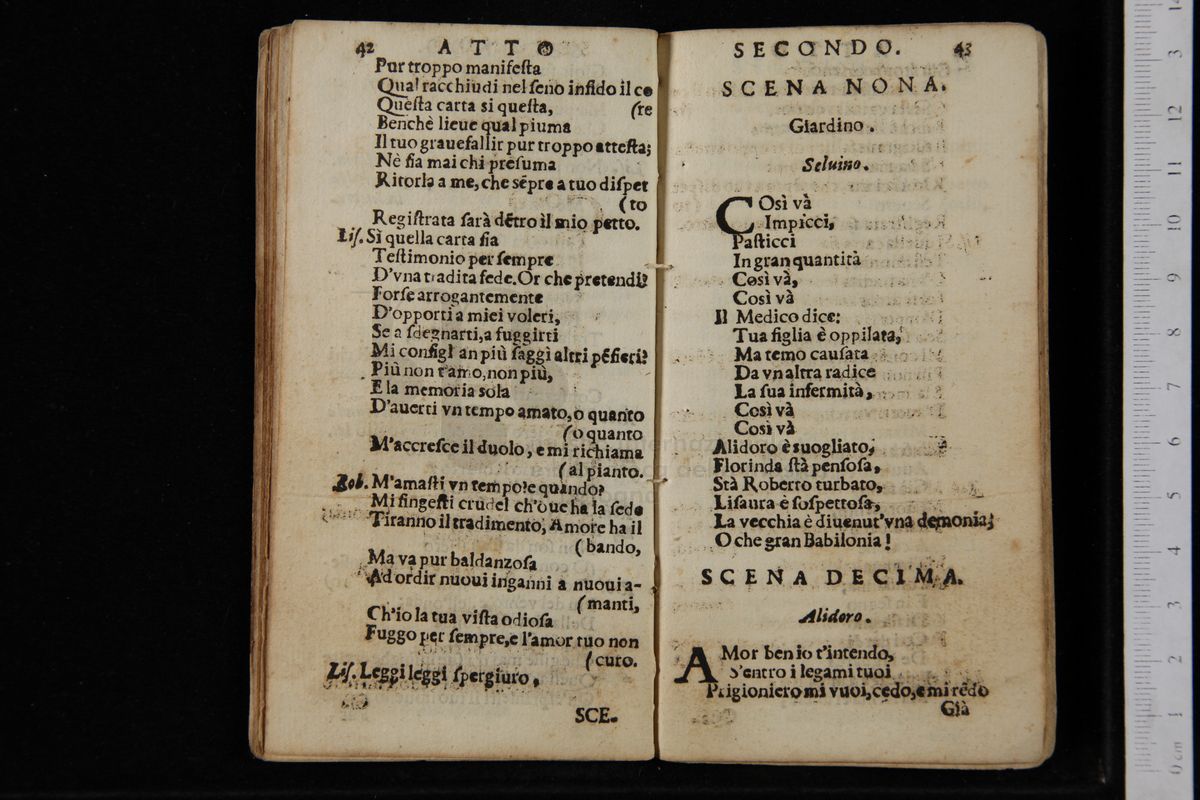 42 ATTO
Pur troppo manifeſta
Qual racchiudi nel ſeno infido il co
Queſta carta si queſta, (re
Benchè lieue qual piuma
Il tuo grauefallir pur troppo atteſta;
Nè fia mai chi preſuma
Ritorla a me, che sēpre a tuo diſpet
(to
Regiſtrata ſarà dētro il mio petto.
Liſ. Sì quella carta ſia
Teſtimonio per ſempre
D'vna tradita fede. Or che pretendi?
Forſe arrogantemente
D'opporti a miei voleri,
Se a ſdegnarti, a fuggirti
Mi conſigl an più ſaggi altri pēſieri?
Più non t'amo, non più,
E la memoria sola
D'auerti vn tempo amato, o quanto
(o quanto
M'accreſce il duolo, e mi richiama
(al pianto.
Rob. M'amaſti vn tempo? e quando?
Mi fingeſti crudel ch'oue ha la ſede
Tiranno il tradimento, Amore ha il
(bando,
Ma va pur baldanzoſa
Ad ordir nuoui inganni a nuoui a-
(manti,
Ch'io la tua viſta odioſa
Fuggo per ſempre, e l'amor tuo non
(curo.
Liſ. Leggi leggi ſpergiuro,
SCE.
SECONDO. 43
SCENA NONA.
Giardino.
Seluino.
COsì và
Impicci,
Paſticci
In gran quantità
Così và,
Così và
Il Medico dice:
Tua figlia è oppilata,
Ma temo cauſata
Da vn altra radice
La ſua infermità,
Così và
Così và
Alidoro è suogliato;
Florinda ſtà penſoſa,
Stà Roberto turbato,
Liſaura è ſoſpettoſa,
La vecchia è diuenut'vna demonia;
O che gran Babilonia!
SCENA DECIMA.
Alidoro.
AMor ben io t'intendo,
S'entro i legami tuoi
Prigioniero mi vuoi, cedo, e mi rēdo
Già